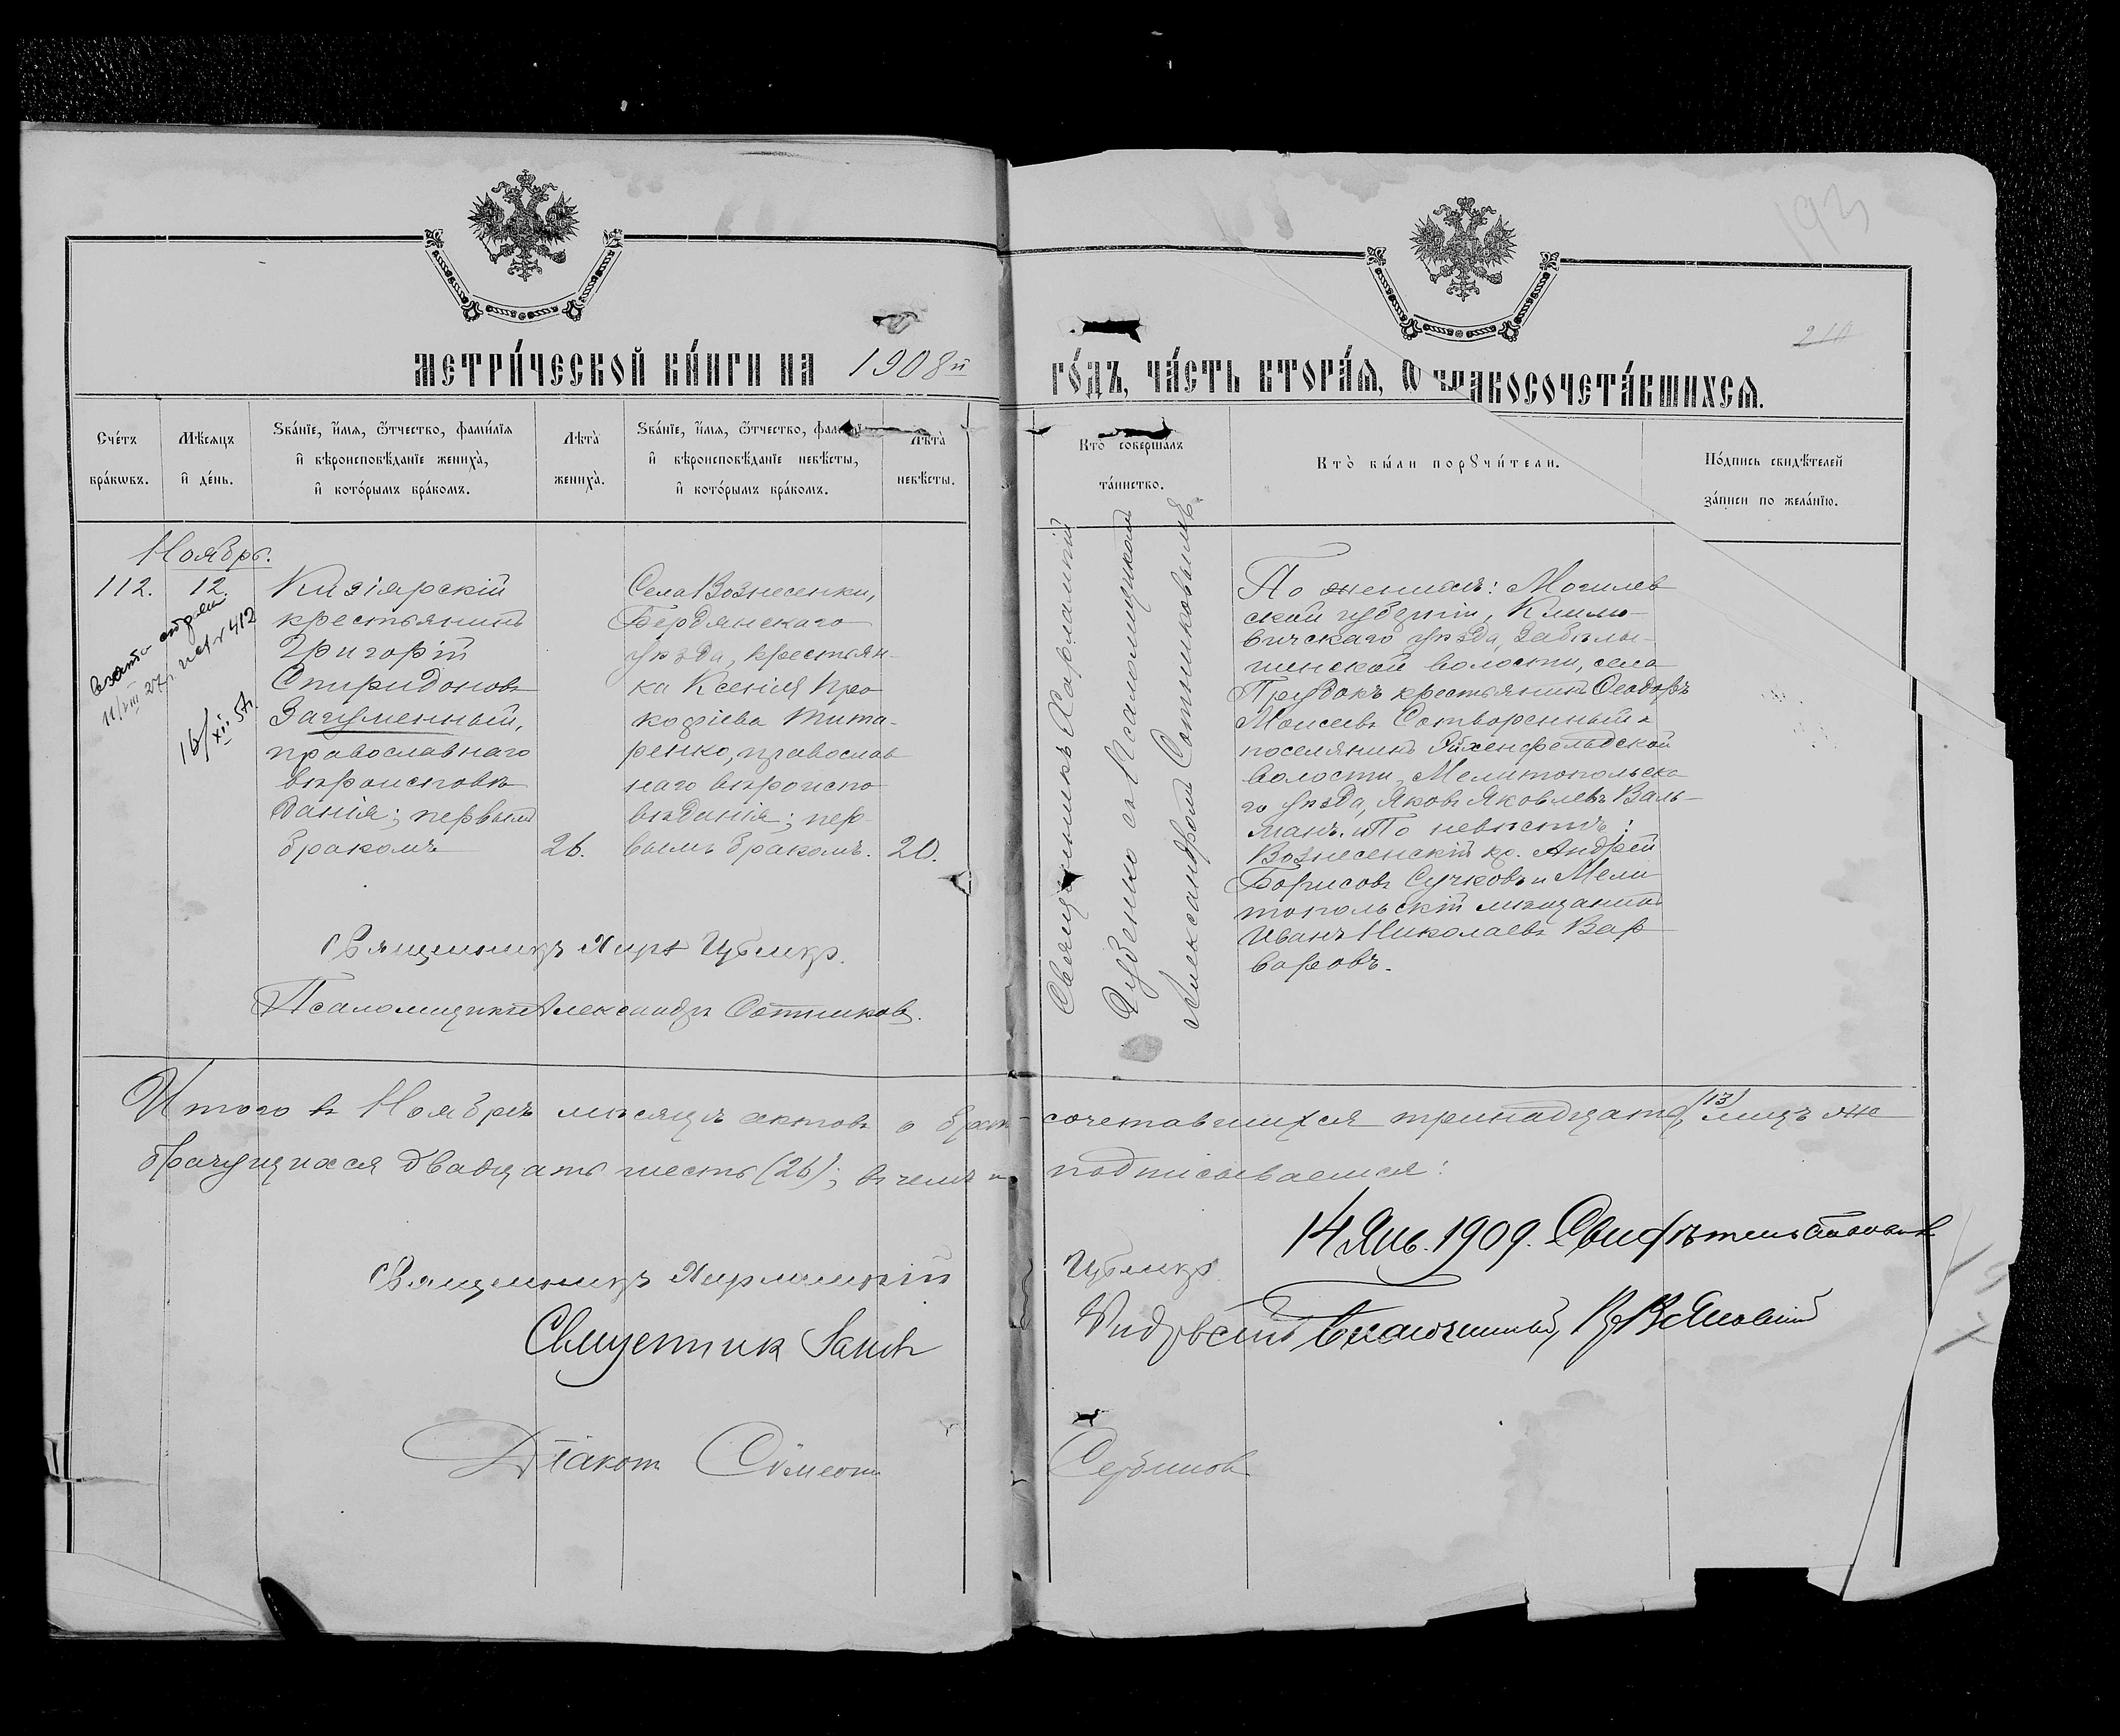 193
210
МЕТРИ́ЧЕСКОЙ КНИ́ГИ НА 1908й ГО́ДЪ, ЧА́СТЬ ВТОРА́Я, Ѿ БРАКОСОЧЕТА́ВШИХСЯ.
Сче́тъ бра́кѡвъ.
Мѣ́сяцъ и҆ де́нь.
Зва́нїе, и҆́мя, ѻ҆́тчество, фами́лїя и҆ вѣроисповѣ́данїе жениха̀, и҆ кото́рымъ бра́комъ.
Лѣта̀ жениха̀.
Зва́нїе, и҆́мя, ѻ҆́тчество, фами́лїя и҆ вѣроисповѣ́данїе невѣ́сты, и҆ кото́рымъ бра́комъ.
Лѣта̀ невѣ́сты.
Кто̀ соверша́лъ та́инство.
Кто̀ бы́ли порꙋчи́тели.
По́дпись свидѣ́телей за́писи по жела́нїю.
Ноябрь.
112.
12.
11/VIII 27 г.
412
16/XII 57г.
Кизіярскій
крестьянинъ
Григорій
Спиридоновъ
Загуменный,
православнаго
вѣроисповѣ
данія; первымъ
бракомъ
26.
Села Вознесенки,
Бердянскаго
уѣзда, крестьян-
ка Ксенія Про
кофіева Тита-
ренко, православ
наго вѣроиспо
вѣданія; пер-
вымъ бракомъ.
20.
Священникъ Харлампій
Цубенко съ Псаломщикомъ
Александромъ Сотниковымъ.
По женихѣ: Могилев
ской губерніи, Климо-
вичскаго уѣзда, Забѣлы-
шенской волости, села
Прудокъ крестьянинъ Ѳеодоръ
Моисеевъ Сотворенный и
поселянинъ Эйхенфельдской
волости, Мелитопольска
го уѣзда, Яковъ Яковлевъ Валь-
манъ. По невѣстѣ:
Вознесенскій кр. Андрей
Борисовъ Сучковъ и Мели
топольскій мѣщанинъ
Иванъ Николаевъ Вар
варовъ.
Священникъ
Псаломщикъ Александръ Сотниковъ.
Итого въ Ноябрѣ мѣсяцѣ актовъ о брако-сочетавшихся тринадцать (13) лицъ же
брачущихся двадцать шесть (26); въ чемъ и подписываемся:
14 Янв. 1909. Свидѣтельствовалъ
Священникъ Харлампій
Благочинный,
Священник
Діаконъ Симеонъ Сербиновъ